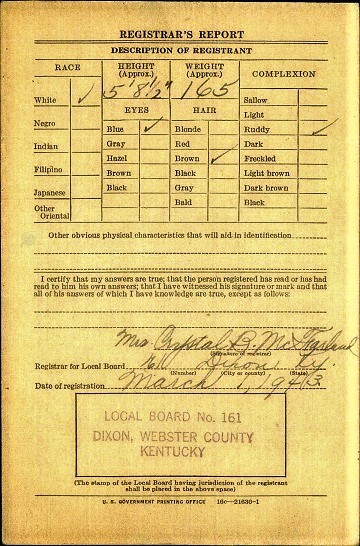 REGISTRAR'S REPORT
DESCRIPTION OF REGISTRANT
RACE
HEIGHT (Approx.)
WEIGHT (Approx.)
COMPLEXION
5' 8½"
165
White ✓
Negro
Indian
Filipino
Japanese
Other Oriental
EYES
Blue ✓
Gray
Hazel
Brown
Black
HAIR
Blonde
Red
Brown ✓
Black
Gray
Bald
Sallow
Light
Ruddy ✓
Dark
Freckled
Light brown
Dark brown
Black
Other obvious physical characteristics that will aid in identification
I certify that my answers are true; that the person registered has read or has had
read to him his own answers; that I have witnessed his signature or mark and that
all of his answers of which I have knowledge are true, except as follows:
Mrs. Crystal B.
(Signature of registrar)
Registrar for Local Board 161 Dixon Ky.
(Number) (City or county) (State)
Date of registration March 1, 1943
LOCAL BOARD No. 161
DIXON, WEBSTER COUNTY
KENTUCKY
(The stamp of the Local Board having jurisdiction of the registrant
shall be placed in the above space)
U. S. GOVERNMENT PRINTING OFFICE 16c—21630-1